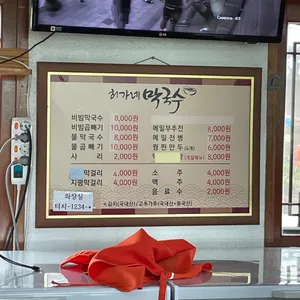 Camera 03
허가네 막국수
비빔막국수 8,000원
비빔곱빼기 10,000원
물막국수 8,000원
물곱빼기 10,000원
사리 2,000원
메밀부추전 8,000원
메밀전병 7,000원
찜찐만두(6개) 6,000원
8,000원
막걸리 4,000원
지평막걸리 4,000원
소주 4,000원
맥주 4,000원
음료수 2,000원
화장실
터치-1234-*
*김치(국내산)/고추가루(국내산+중국산)